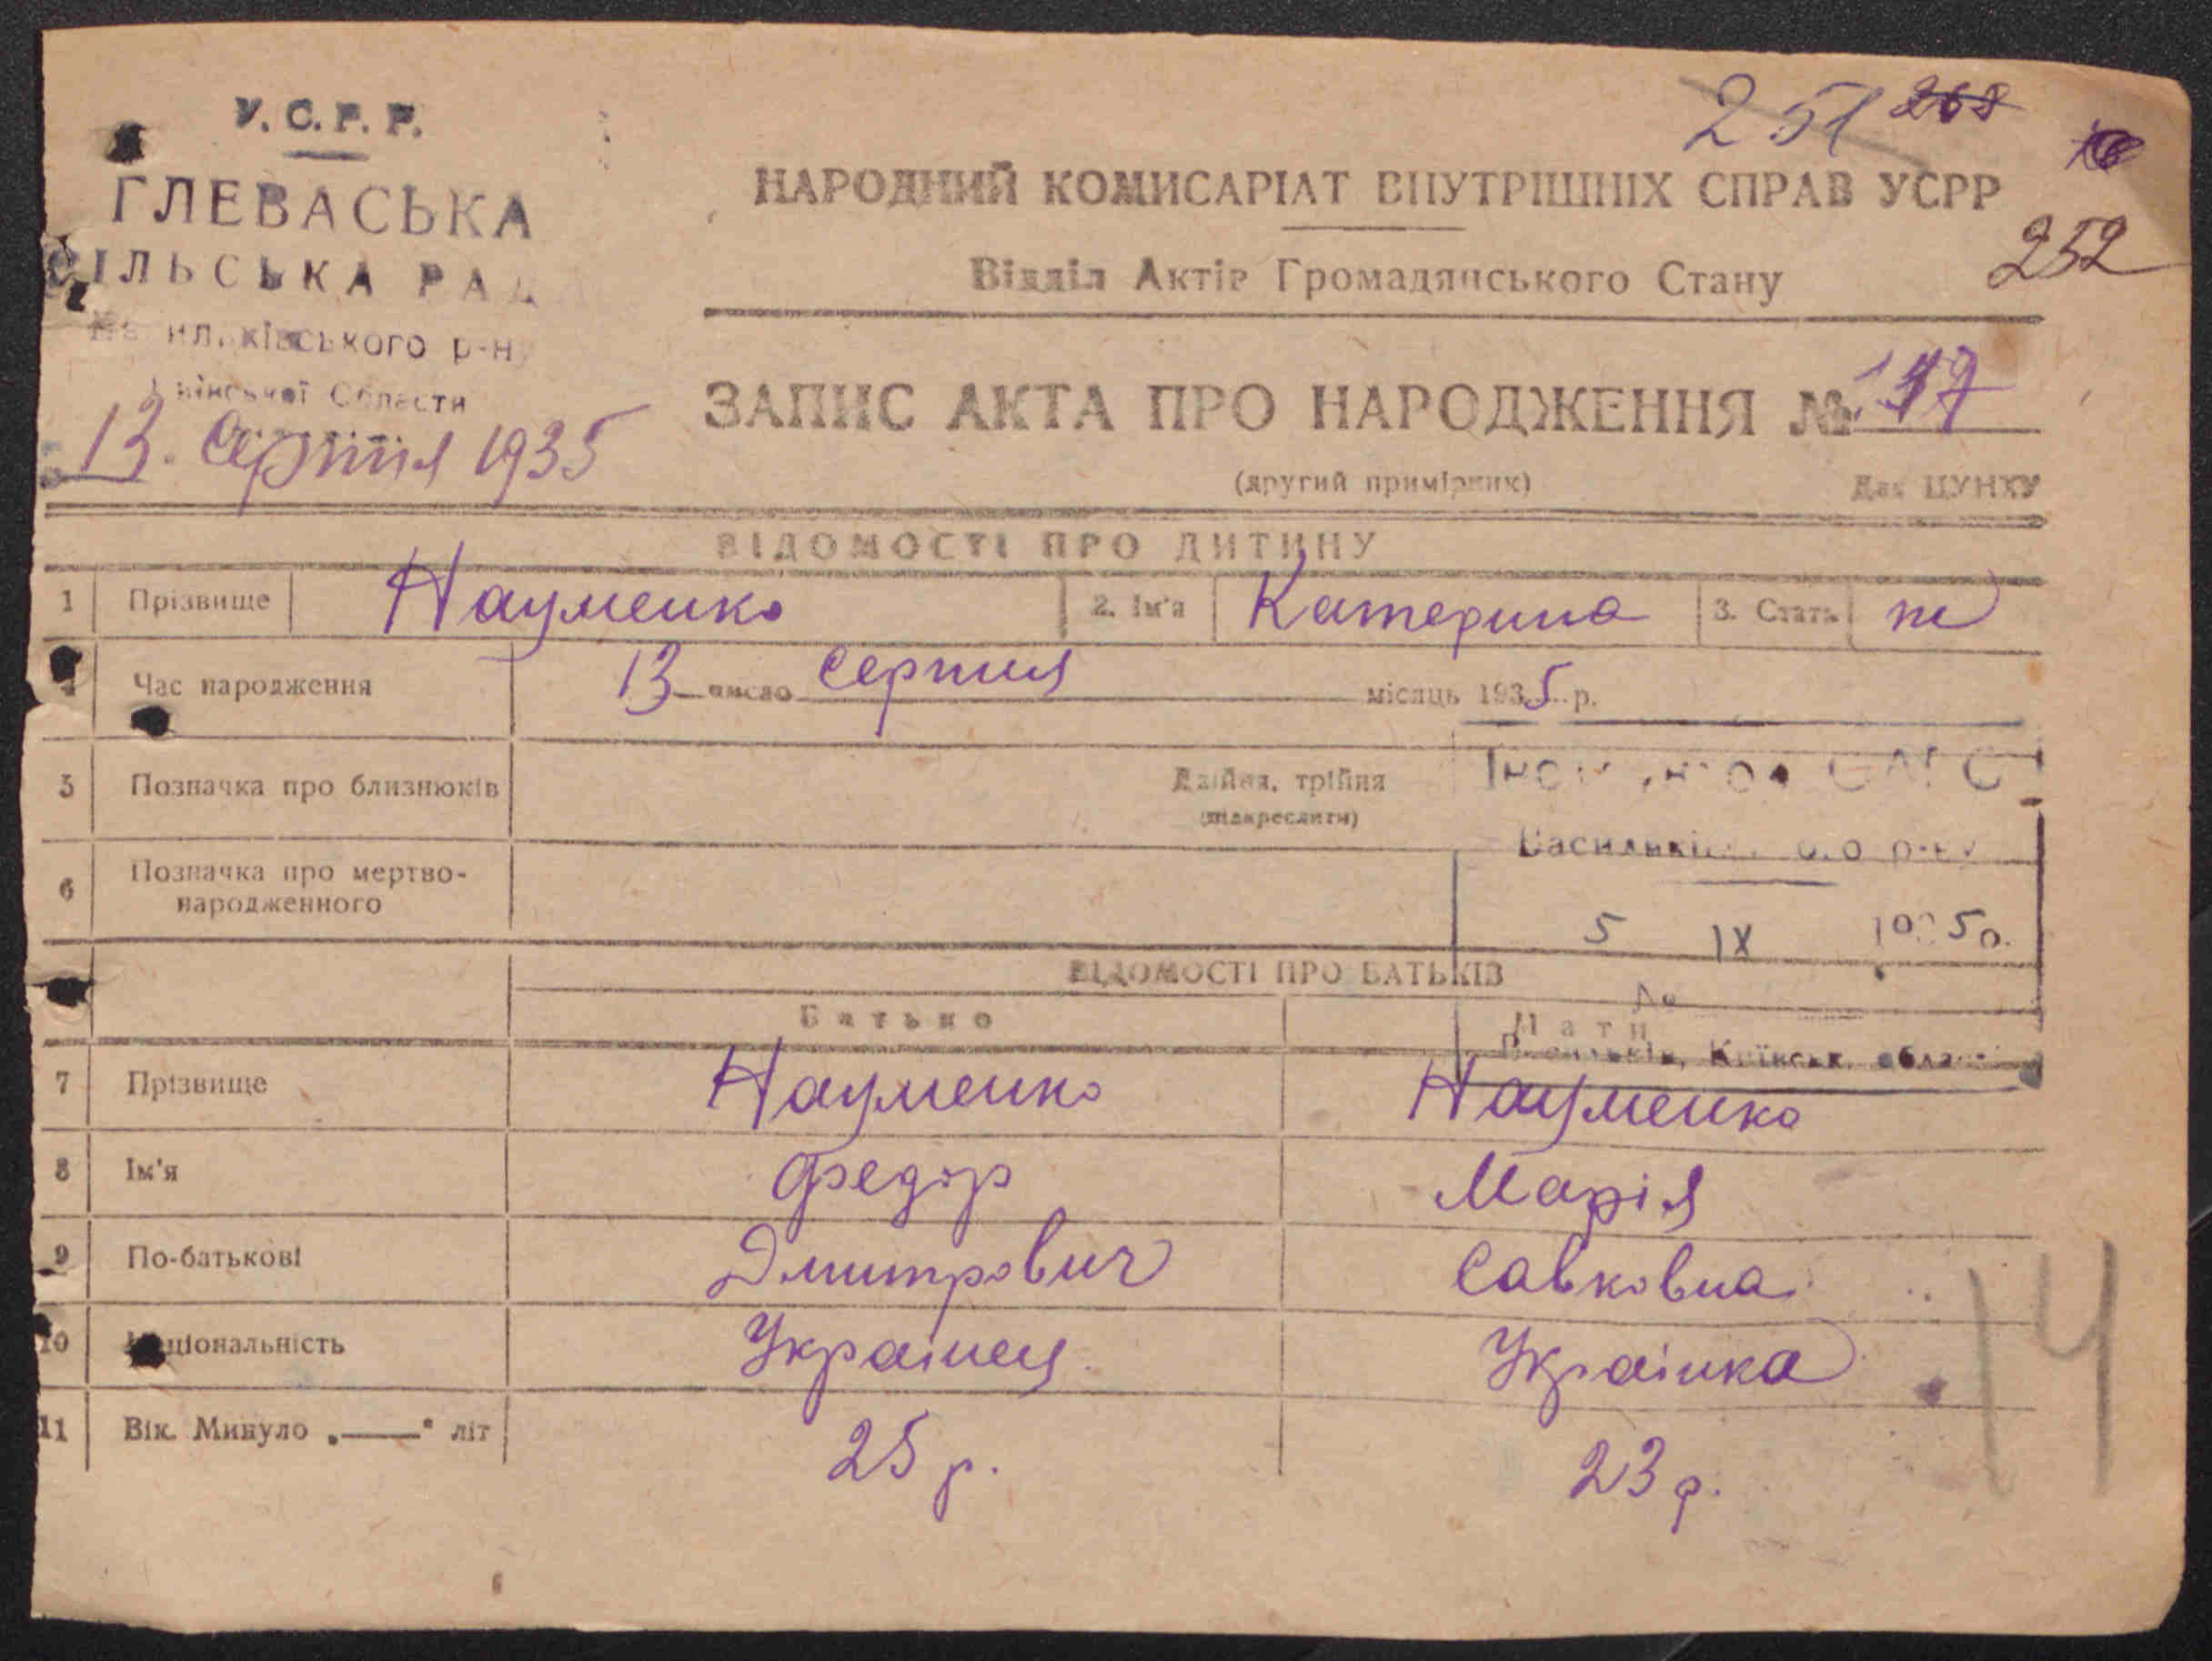 У.С.Р.Р.
ГЛЕВАСЬКА
СІЛЬСЬКА РАДА
р-н
Области
13. Серпня 1935
251 268
252
НАРОДНИЙ КОМИСАРІАТ ВНУТРІШНІХ СПРАВ УСРР
Відділ Актів Громадянського Стану
ЗАПИС АКТА ПРО НАРОДЖЕННЯ №
(другий примірник) Для ЦУНХУ
ВІДОМОСТІ ПРО ДИТИНУ
1 Прізвище Науменко 2. Ім'я Катерина 3. Стать ж
4 Час народження 13 число Серпня місяць 1935 р.
5 Позначка про близнюків Двійня, трійня
(підкреслити)
6 Позначка про мертво-
народженного
5 IX
ВІДОМОСТІ ПРО БАТЬКІВ
Батько Мати
Київськ. област
7 Прізвище Науменко Науменко
8 Ім'я Федір Марія
9 По-батькові Дмитрович Савковна
10 Національність Украінец Украінка
11 Вік. Минуло „—" літ 25 р. 23 р.
14